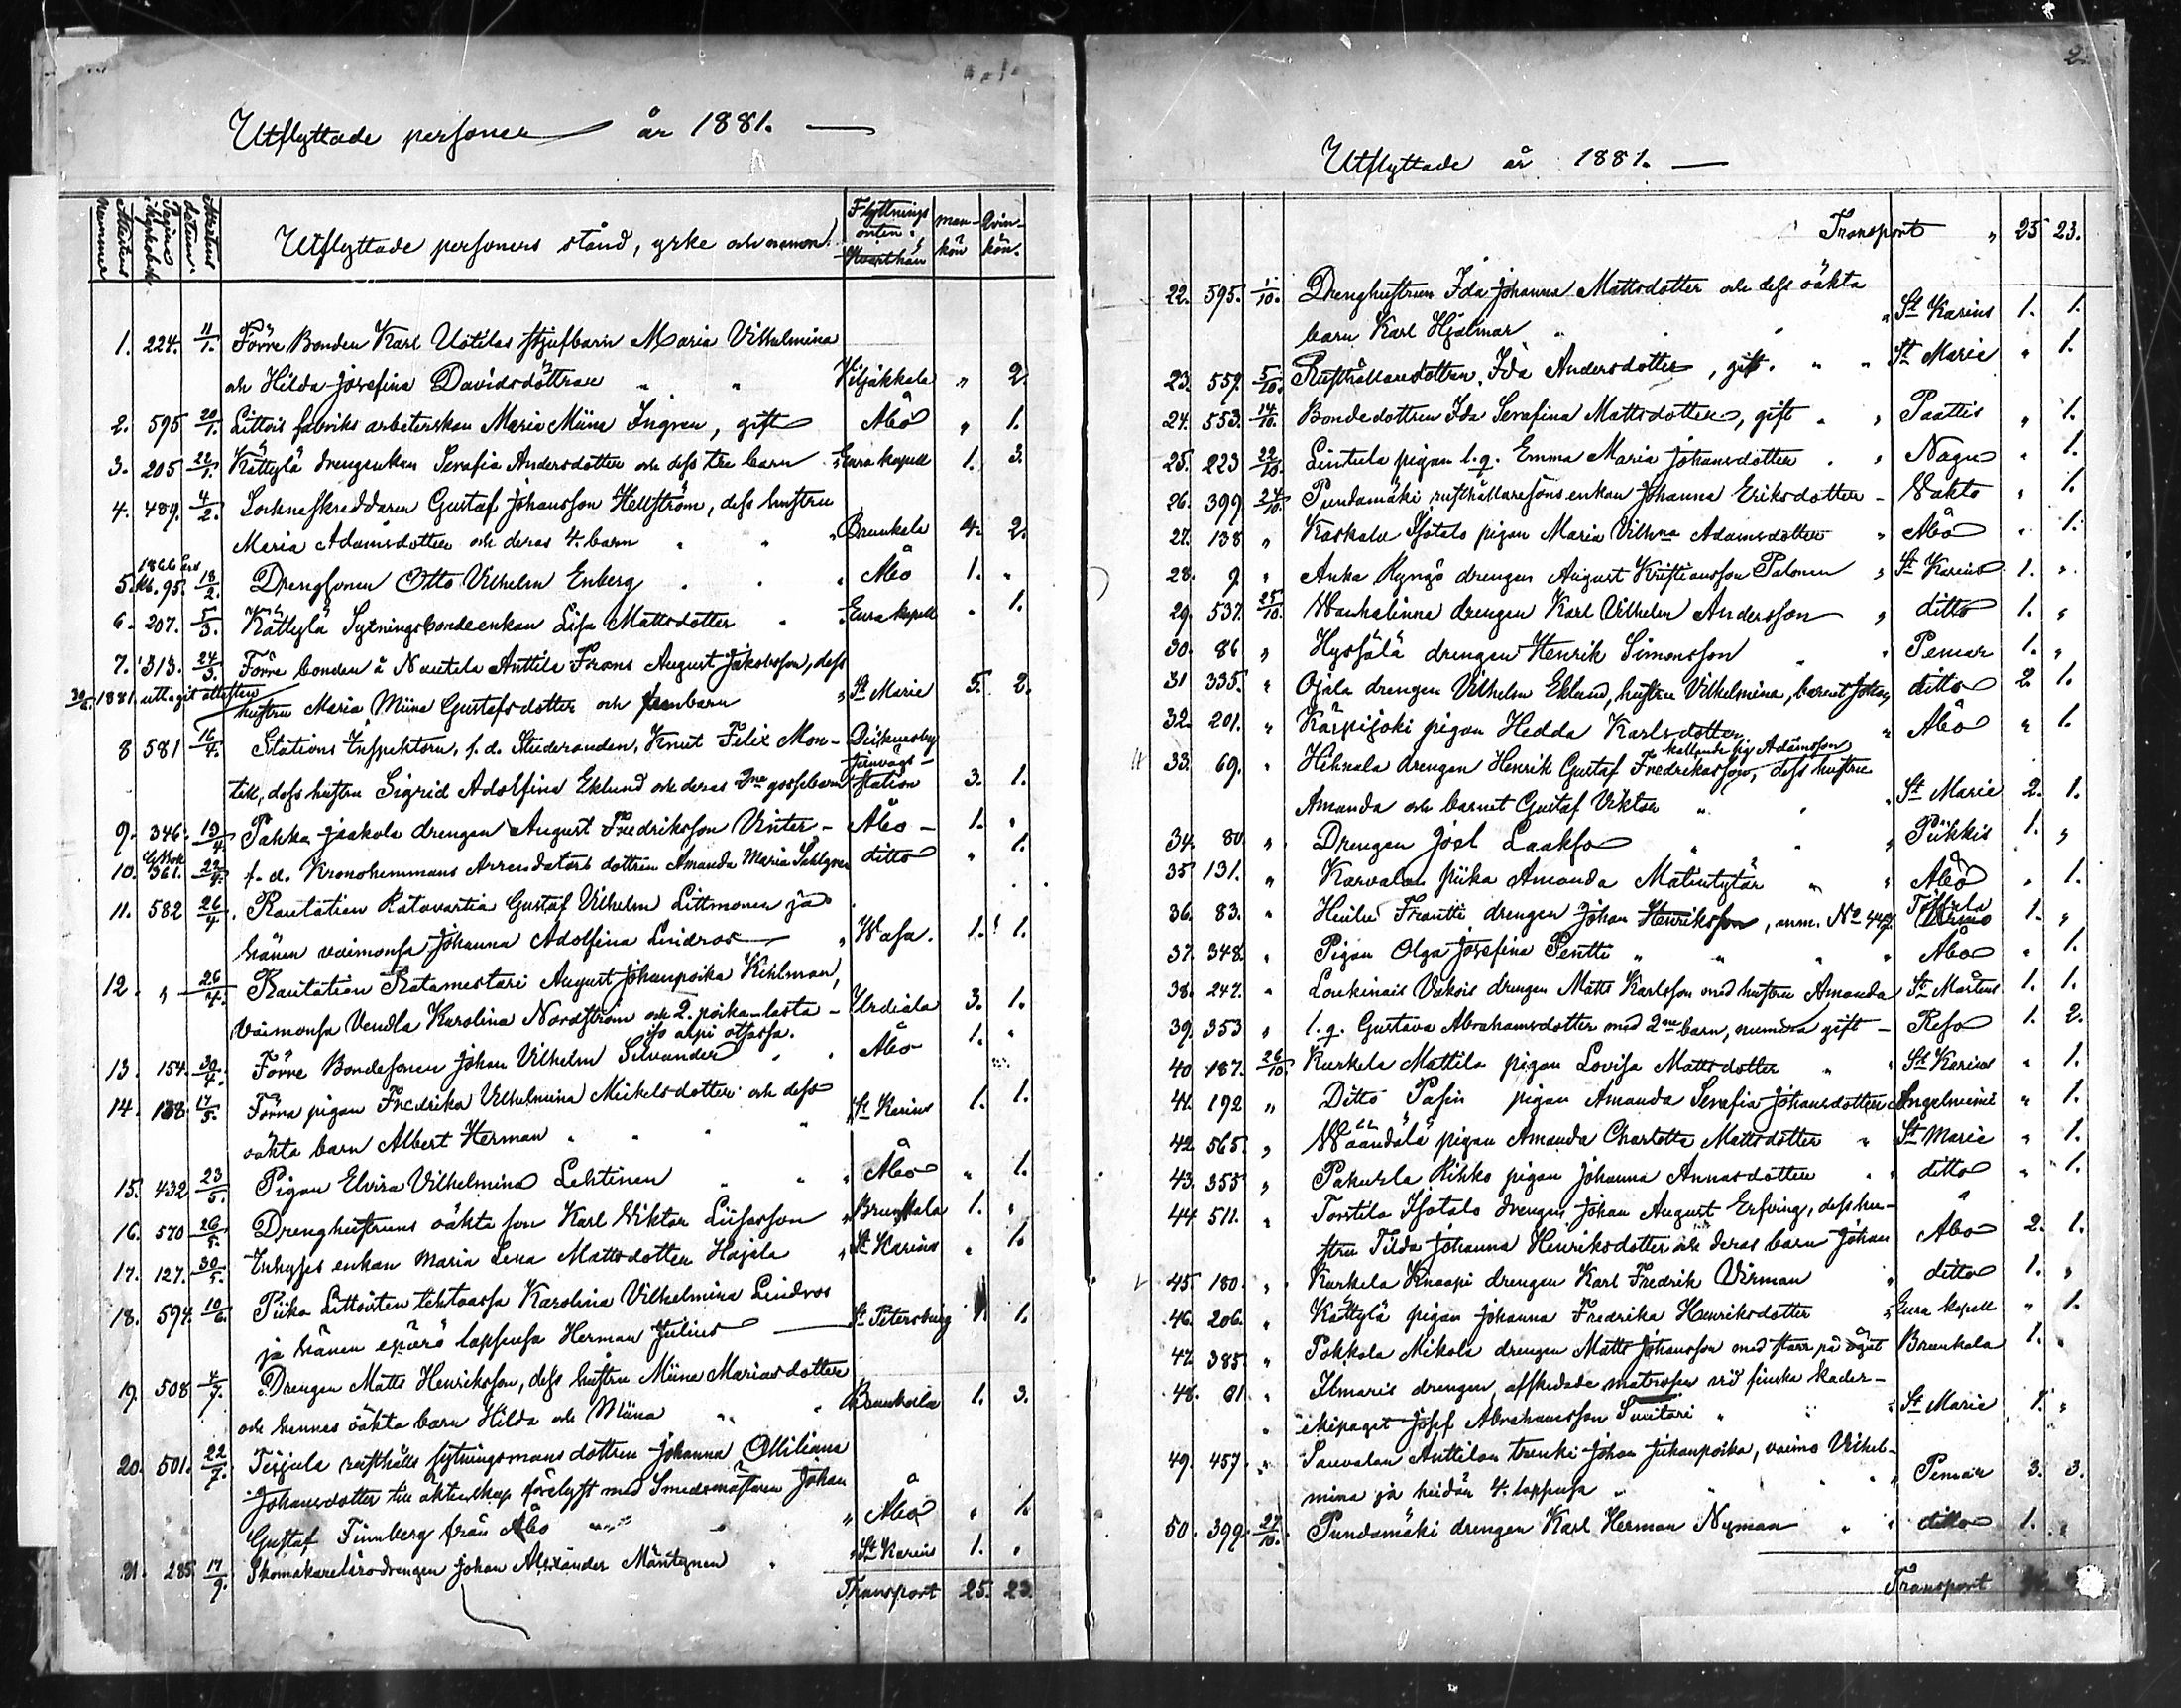 Utflyttade personer år 1881.
Attestens nummer
Pagina i kyrkobok
Attestens datum
Utflyttade personers stånd, yrke och namn.
Flyttnings orten.
man-kön
Qvin-kön.
1. 224. 11/1. Förre Bonden Karl Uotilas styfbarn Maria Vilhelmina
och Hilda Josefina Davidsdöttrar " " Viljakkala " 2.
2. 595 20/1. Littois fabriks arbeterskan Maria Miina Ingren, gift Åbo " 1.
3. 205 22/1. Kättylä drengenkan Serafia Andersdotter och dess tre barn Eura kapell 1. 3.
4. 489. 4/2. Sockneskreddaren Gustaf Johansson Hellström, dess hustru
Maria Adamsdotter och deras 4. barn " " Brunkala 4. 2.
1866 års
5. 95. 18/2. Drengsonen Otto Vilhelm Enberg " " Åbo 1. "
6. 207. 5/3. Kättylä Sytningsbondeenkan Lisa Mattsdotter " Eura kapell " 1.
7. 313. 24/3. Förre bonden å Nautela Anttila Frans August Jakobsson, dess
1881 uttagit attesten hustru Maria Miina Gustafsdotter och fem barn " St Marie 5. 2.
8 581 16/4. Stations Inspektorn, f. d. Studeranden, Knut Felix Mon-
tell, dess hustru Sigrid Adolfina Eklund och deras 2ne gossebarn Dickursby jernvägs-station 3. 1.
9. 346. 19/4 Pahka-Jaakola drengen August Fredriksson Vinter - Åbo - 1. "
10. 361. 22/4. f. d. Kronohemmans Arrendators dottren Amanda Maria Sahlgren ditto " 1.
11. 582 26/4. Rautatien Ratavartia Gustaf Vilhelm Littmonen ja
hänen vaimonsa Johanna Adolfina Lindros " Wasa. 1. 1.
12. " 26/4. Rautatien Ratamestari August Johanpoika Kihlman,
vaimonsa Vendla Karolina Nordström och 2. poika-lasta - Urdiala 3. 1.
13. 154. 30/4. Förre Bondesonen Johan Vilhelm Silvander " " Åbo 1. "
14. 138. 17/5. Förra pigan Fredrika Vilhelmina Mickelsdotter och dess
oäkta barn Albert Herman " " " " St Karins 1. 1.
15. 432 23/5. Pigan Elvira Vilhelmina Lehtinen " " " Åbo " 1.
16. 570 26/5. Drenghustruns oäkta son Karl Viktor Liisasson " Brunkala 1. "
17. 127. 30/5. Inhyses enkan Maria Lena Mattsdotter Hajala " St Karins " 1.
18. 594. 10/6. Piika Littoisten tehtaassa Karolina Vilhelmina Lindros
ja hänen epärä lapsensa Herman Julius St Petersburg 1. 1.
19. 508 4/7. Drengen Matts Henriksson, dess hustru Miina Mariasdotter
och hennes oäkta barn Hilda och Miina " " Brunkala 1. 3.
20. 501. 22/7. Tiijula rusthålls sytningsmans dottren Johanna Ottiliana
Johansdotter till äktenskap förelyst med Smedsmästaren Johan
Gustaf Finnberg från Åbo " " Åbo " 1.
21. 285. 17/9. Skomakarelärodrengen Johan Alexander Mäntynen " " St Karins 1. "
Transport 25. 23.
2.
Utflyttade år 1881.
Transport " 25 23.
22. 595. 1/10. Drenghustrun Ida Johanna Mattsdotter och dess oäkta
barn Karl Hjalmar " " " St Karins 1. 1.
23. 557. 5/10. Rusthållaredottren Ida Andersdotter, gift. " " St Marie " 1.
24. 553. 14/10. Bondedottren Ida Serafina Mattsdotter, gift " " Paattis " 1.
25. 223 22/10. Lintula pigan l. q. Emma Maria Johansdotter " " Nagu " 1.
26. 399 24/10. Pundamäki rusthållaresons enkan Johanna Eriksdotter - Vahto " 1.
27. 138 " Kaskala Isotalo pigan Maria Vilhna Adamsdotter " Åbo " 1.
28. 9. " Anka Ryngö drengen August Kristiansson Palonen " St Karins 1. "
29. 537. 25/10. Wanhalinna drengen Karl Vilhelm Andersson " ditto 1. "
30. 86 " Hyssälä drengen Henrik Simonsson " " Pemar 1. "
31 335. " Ojala drengen Vilhelm Eklund, hustru Vilhelmina, barnet Johan, ditto 2. 1.
32. 201. " Kärpijoki pigan Hedda Karlsdotter " Åbo " 1.
kallande sig Adamsson
33. 69. " Hihnala drengen Henrik Gustaf Fredriksson, dess hustru
Amanda och barnet Gustaf Viktor " " " St Marie 2. 1.
34. 80. " Drengen Joel Laakso " " " Piikkis 1. "
35 131. " Karvalan piika Amanda Matintytär " " Åbo " 1.
36. 83. " Heilu Frantti drengen Johan Henriksson, anm. No 447. 1. "
37. 348. " Pigan Olga Josefina Pentti " " " " Åbo " 1.
38. 247. " Loukinais Vakois drengen Matts Karlsson med hustru Amanda St Mårtens 1. 1.
39. 353 " l. q. Gustava Abrahamsdotter med 2ne barn, numera gift - Reso 1. 2.
40 187. 26/10. Kurkela Mattila pigan Lovisa Mattsdotter " " St Karins " 1.
41. 192 " Ditto Pasin pigan Amanda Serafia Johansdotter Angelniemi " 1.
42. 565. " Wäändälä pigan Amanda Charlotta Mattsdotter " St Marie " 1.
43. 355 " Pakurla Rihko pigan Johanna Annasdotter " " ditto " 1.
44 511. " Tortila Isotalo drengen Johan August Erfving, dess hu-
stru Tilda Johanna Henriksdotter och deras barn Johan Åbo 2. 1.
45. 180. " Kurkela Knaapi drengen Karl Fredrik Virman " ditto 1. "
46. 206. " Kättylä pigan Johanna Fredrika Henriksdotter " Eura kapell " 1.
47. 385. " Pokkola Mikola drengen Matts Johansson med starr på ögat Brunkala 1. "
48. 81. " Ilmaris drengen, afskedade matrosen vid finska kader-
" ekipaget Josef Abrahamsson Suutari " " " St Marie 1. "
49. 457. " Sauvalan Anttilan trenki Johan Juhanpoika, vaimo Vilhel-
mina ja heidän 4. lapsensa " " " " Pemar 3. 3.
50. 399. 27/10. Pundamäki drengen Karl Herman Nyman " " ditto 1. "
Transport